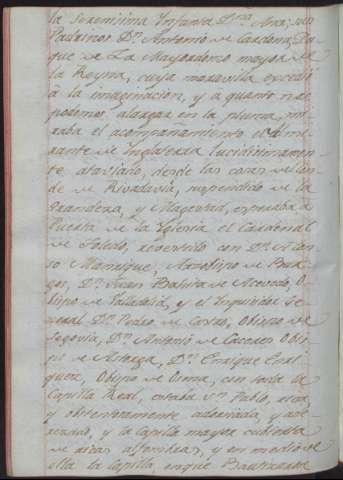 la Serenisima Infanta D.ª Ana; sus
Padrinos D.n Antonio de Cardona, Du
que de Mayordomo mayor de
la Reyna, cuya maravilla excedió
à la imaginacion, y à quanto nos
podemos alargar en la pluma, mi
raba el acompañamiento el Almi
rante de Inglaterra lucidisimamen
te ataviado, desde las casas del Con
de de Rivadavia, suspendido de la
grandeza, y Magestad, esperaba à
Puerta de la Yglesia el Cardenal
de Toledo, rebestido con D.n Alon
so Manrique, Arzobispo de Bur
gos, D.n Juan Bautista de Acevedo, O
bispo de Valladolid, y el Inquisidor Ge
neral D.n Pedro de Castro, Obispo de
Segovia, D.n Antonio de Caceres Obis
po de Astorga, D.n Enrique Enrri
quez, Obispo de Osma, con toda la
Capilla Real, estaba S.n Pablo, rica
y obstentosamente aderezada, y
y la Capilla mayor cubierta
de ricas alfombras, y en medio de
ella la Capilla, en que Bautizaron